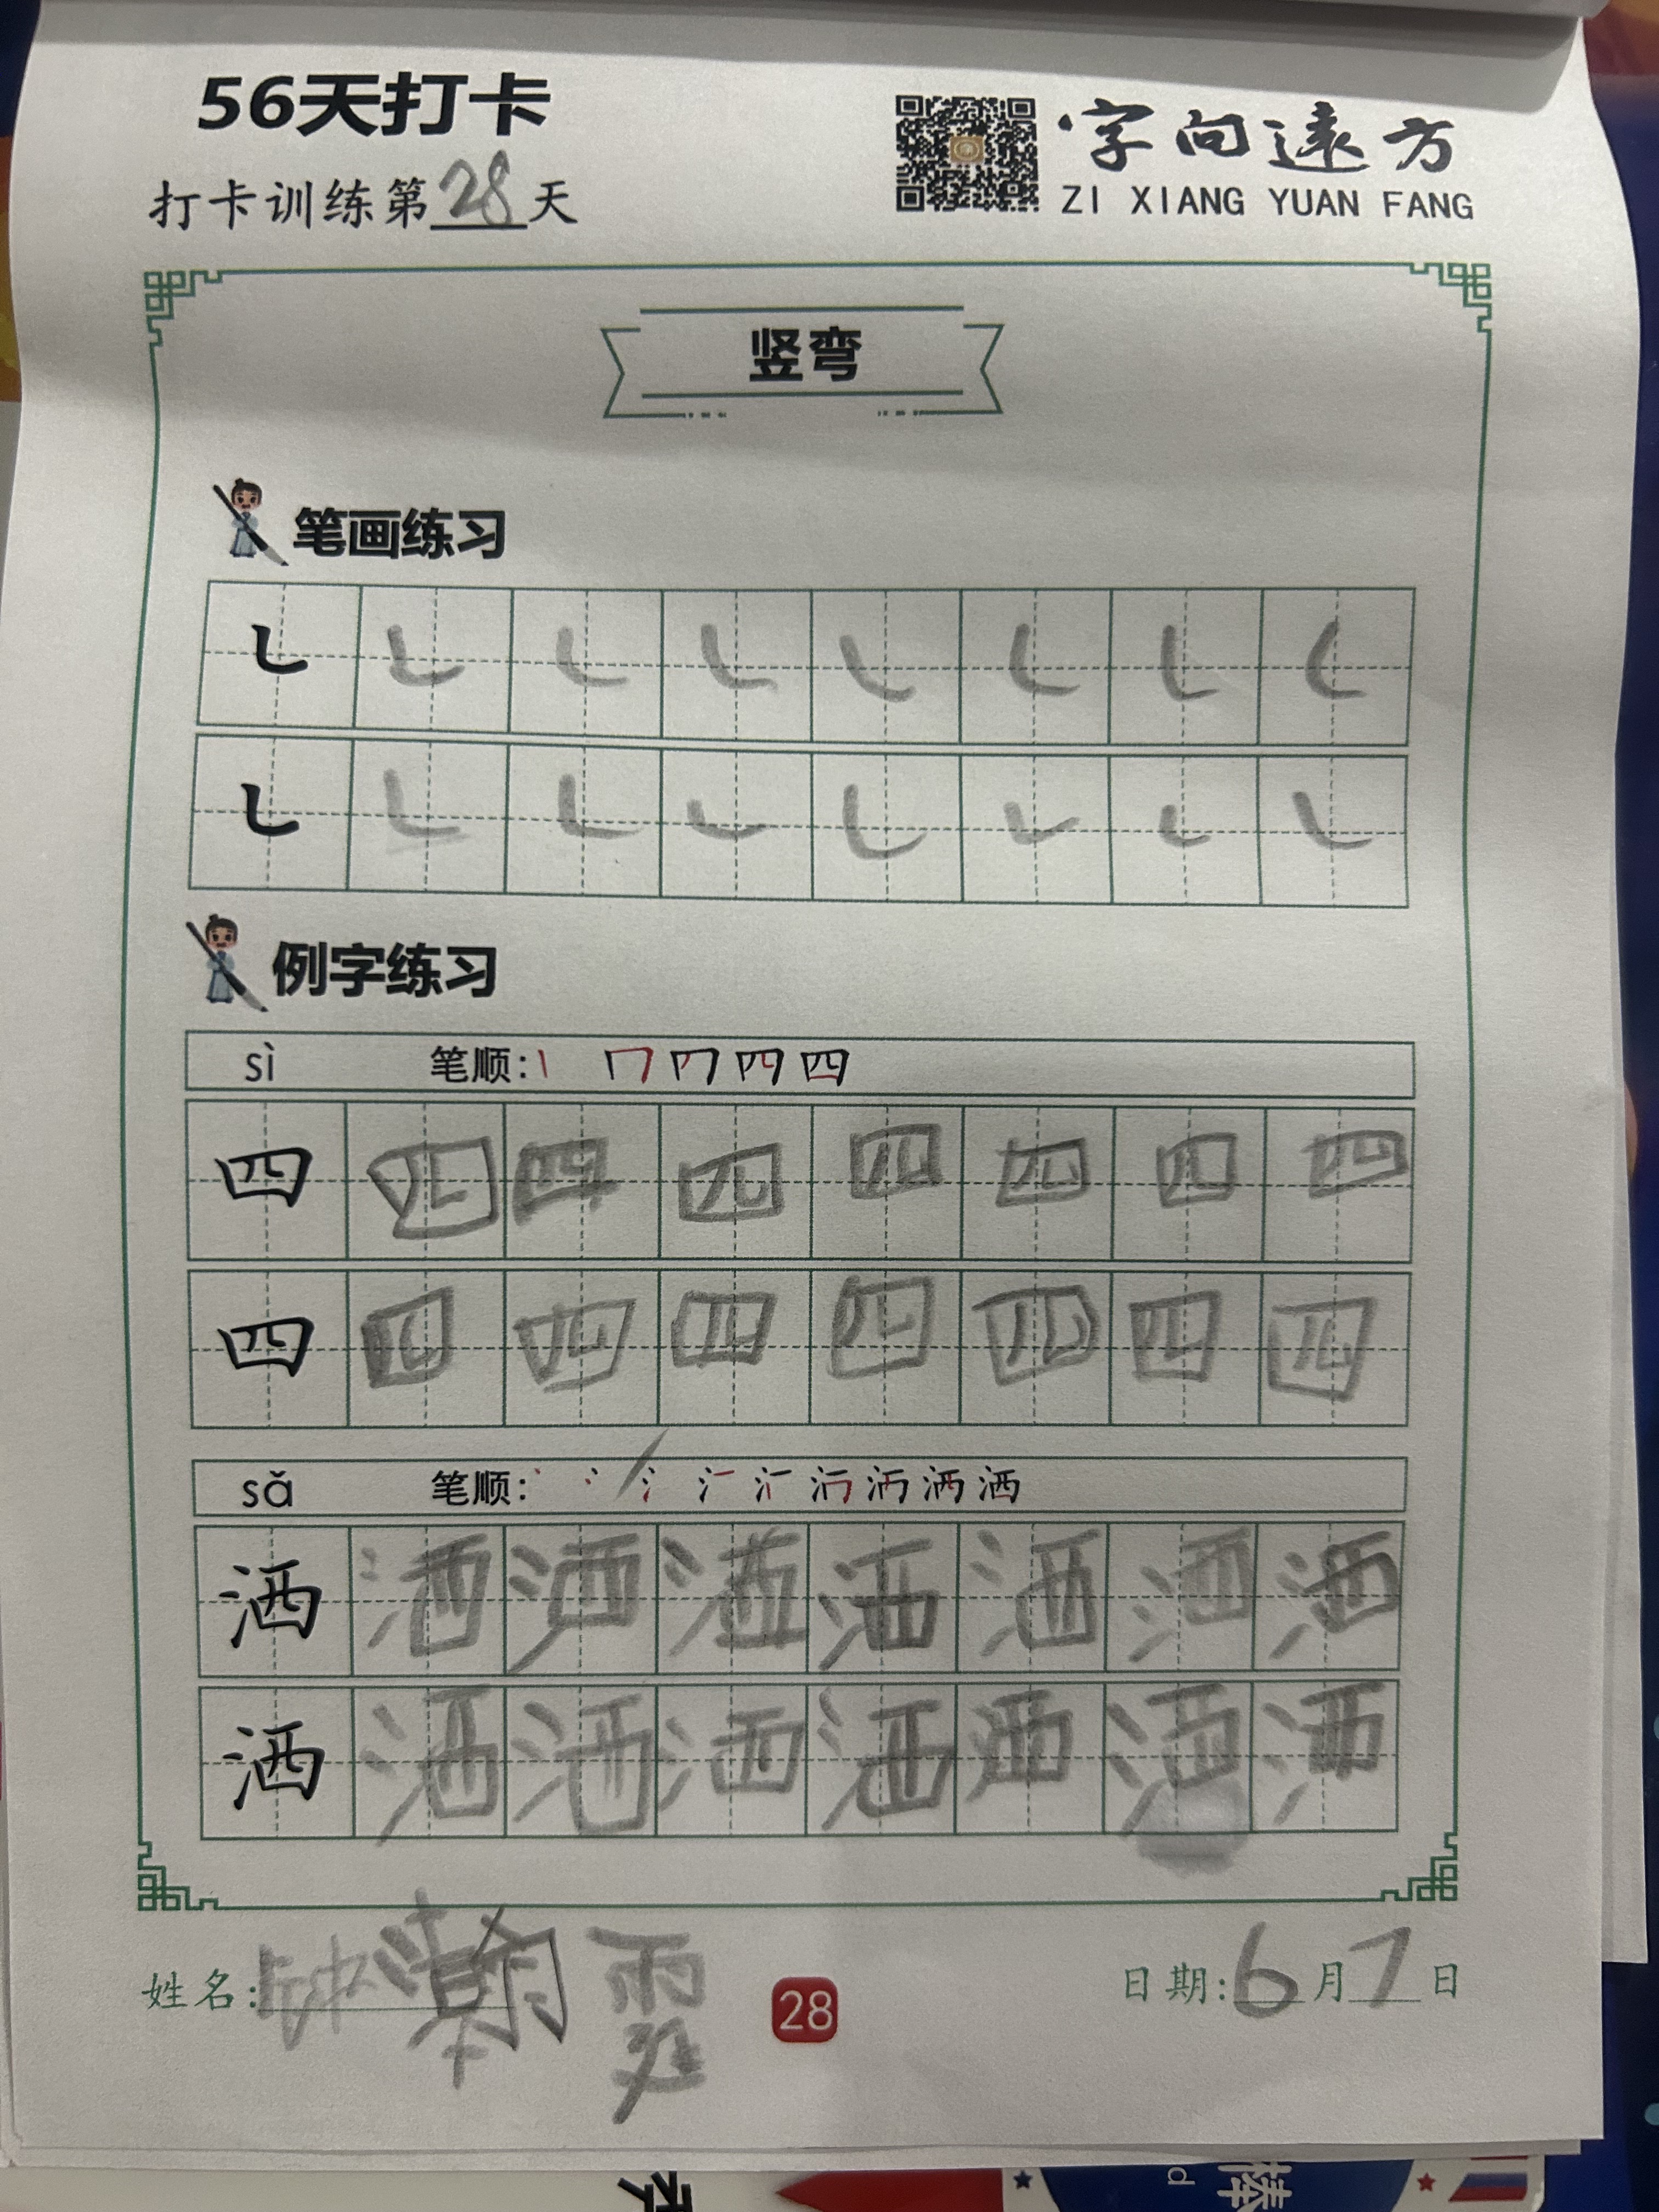 56天打卡
打卡训练第28天
字向遠方
ZI XIANG YUAN FANG
竖弯
笔画练习
例字练习
sì 笔顺:
四 四 四 四 四 四 四 四
四 四 四 四 四 四 四 四
sǎ 笔顺:
洒 洒 洒 洒 洒 洒 洒 洒
洒 洒 洒 洒 洒 洒 洒 洒
姓名:钟瀚霆
28
日期:6月7日
棒